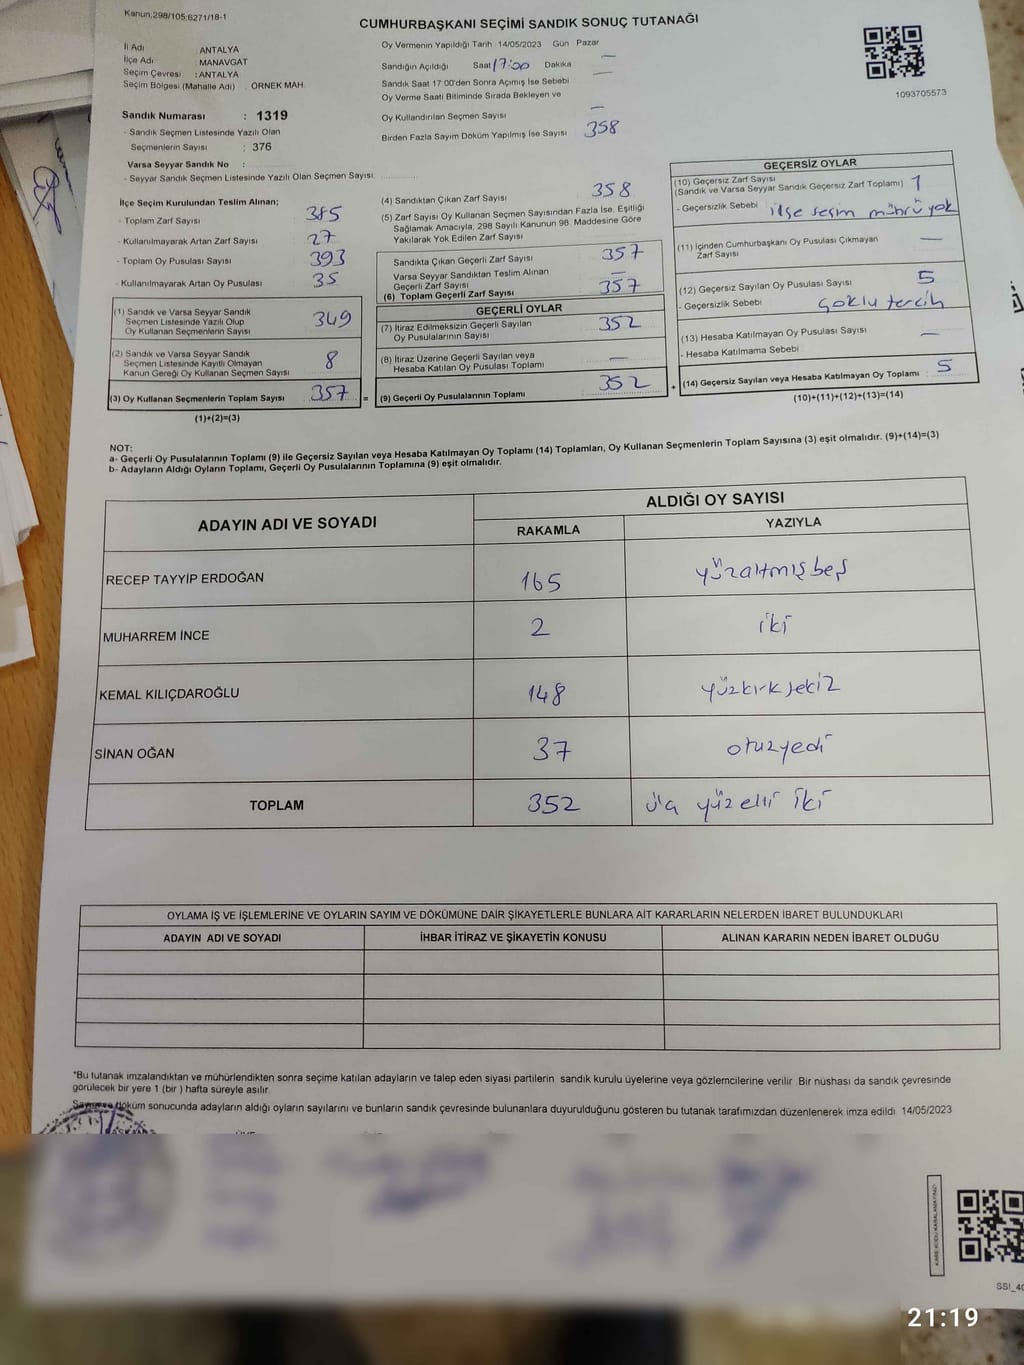 Kanun;298/105;6271/18-1
CUMHURBAŞKANI SEÇİMİ SANDIK SONUÇ TUTANAĞI
İl Adı ANTALYA
İlçe Adı MANAVGAT
Seçim Çevresi : ANTALYA
Seçim Bölgesi (Mahalle Adı) : ÖRNEK MAH.
Sandık Numarası : 1319
- Sandık Seçmen Listesinde Yazılı Olan
Seçmenlerin Sayısı : 376
Varsa Seyyar Sandık No :
- Seyyar Sandık Seçmen Listesinde Yazılı Olan Seçmen Sayısı.
Oy Vermenin Yapıldığı Tarih 14/05/2023 Gün Pazar
Sandığın Açıldığı Saat 17:00 Dakika —
Sandık Saat 17.00'den Sonra Açımış İse Sebebi —
Oy Verme Saati Bitiminde Sırada Bekleyen ve
Oy Kullandırılan Seçmen Sayısı —
Birden Fazla Sayım Döküm Yapılmış İse Sayısı 358
1093705573
İlçe Seçim Kurulundan Teslim Alınan;
- Toplam Zarf Sayısı 385
- Kullanılmayarak Artan Zarf Sayısı 27
- Toplam Oy Pusulası Sayısı 393
- Kullanılmayarak Artan Oy Pusulası 35
(1) Sandık ve Varsa Seyyar Sandık
Seçmen Listesinde Yazılı Olup
Oy Kullanan Seçmenlerin Sayısı 349
(2) Sandık ve Varsa Seyyar Sandık
Seçmen Listesinde Kayıtlı Olmayan
Kanun Gereği Oy Kullanan Seçmen Sayısı 8
(3) Oy Kullanan Seçmenlerin Toplam Sayısı 357 =
(1)+(2)=(3)
(4) Sandıktan Çıkan Zarf Sayısı 358
(5) Zarf Sayısı Oy Kullanan Seçmen Sayısından Fazla İse, Eşitliği
Sağlamak Amacıyla, 298 Sayılı Kanunun 98. Maddesine Göre
Yakılarak Yok Edilen Zarf Sayısı
Sandıkta Çıkan Geçerli Zarf Sayısı 357
Varsa Seyyar Sandıktan Teslim Alınan
Geçerli Zarf Sayısı —
(6) Toplam Geçerli Zarf Sayısı 357
GEÇERLİ OYLAR
(7) İtiraz Edilmeksizin Geçerli Sayılan
Oy Pusulalarının Sayısı 352
(8) İtiraz Üzerine Geçerli Sayılan veya
Hesaba Katılan Oy Pusulası Toplamı —
(9) Geçerli Oy Pusulalarının Toplamı 352 +
GEÇERSİZ OYLAR
(10) Geçersiz Zarf Sayısı
(Sandık ve Varsa Seyyar Sandık Geçersiz Zarf Toplamı) 1
- Geçersizlik Sebebi ilçe seçim mührü yok
(11) İçinden Cumhurbaşkanı Oy Pusulası Çıkmayan
Zarf Sayısı —
(12) Geçersiz Sayılan Oy Pusulası Sayısı 5
- Geçersizlik Sebebi çoklu tercih
(13) Hesaba Katılmayan Oy Pusulası Sayısı —
- Hesaba Katılmama Sebebi
(14) Geçersiz Sayılan veya Hesaba Katılmayan Oy Toplamı : 5
(10)+(11)+(12)+(13)=(14)
NOT:
a- Geçerli Oy Pusulalarının Toplamı (9) ile Geçersiz Sayılan veya Hesaba Katılmayan Oy Toplamı (14) Toplamları, Oy Kullanan Seçmenlerin Toplam Sayısına (3) eşit olmalıdır. (9)+(14)=(3)
b- Adayların Aldığı Oyların Toplamı, Geçerli Oy Pusulalarının Toplamına (9) eşit olmalıdır.
ADAYIN ADI VE SOYADI ALDIĞI OY SAYISI
RAKAMLA YAZIYLA
RECEP TAYYİP ERDOĞAN 165 yüzaltmışbeş
MUHARREM İNCE 2 iki
KEMAL KILIÇDAROĞLU 148 yüzkırksekiz
SİNAN OĞAN 37 otuzyedi
TOPLAM 352 üç yüzelli iki
OYLAMA İŞ VE İŞLEMLERİNE VE OYLARIN SAYIM VE DÖKÜMÜNE DAİR ŞİKAYETLERLE BUNLARA AİT KARARLARIN NELERDEN İBARET BULUNDUKLARI
ADAYIN ADI VE SOYADI İHBAR İTİRAZ VE ŞİKAYETİN KONUSU ALINAN KARARIN NEDEN İBARET OLDUĞU
*Bu tutanak imzalandıktan ve mühürlendikten sonra seçime katılan adayların ve talep eden siyasi partilerin sandık kurulu üyelerine veya gözlemcilerine verilir. Bir nüshası da sandık çevresinde
görülecek bir yere 1 (bir ) hafta süreyle asılır.
Sayım ve döküm sonucunda adayların aldığı oyların sayılarını ve bunların sandık çevresinde bulunanlara duyurulduğunu gösteren bu tutanak tarafımızdan düzenlenerek imza edildi. 14/05/2023
BAŞKAN
21:19